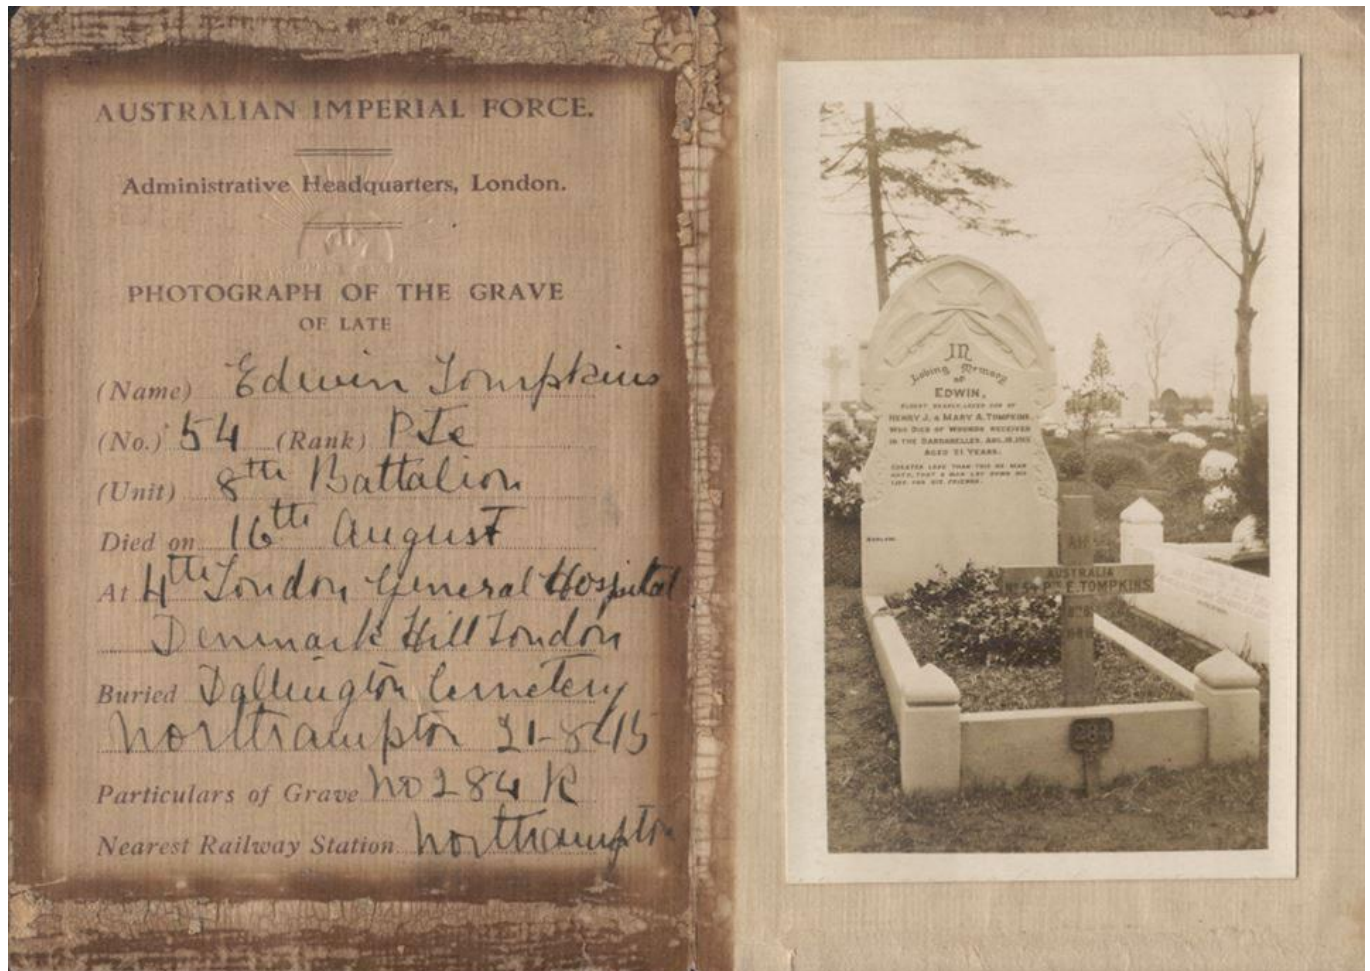 AUSTRALIAN IMPERIAL FORCE.
Administrative Headquarters, London.
PHOTOGRAPH OF THE GRAVE
OF LATE
(Name) Edwin Tompkins
(No.) 54 (Rank) Pte
(Unit) 8th Battalion
Died on 16th August
At 4th London General Hospital
Denmark Hill London
Buried Dallington Cemetery
Northampton 21-8-15
Particulars of Grave No 284 K
Nearest Railway Station Northampton
IN
Loving Memory
OF
EDWIN,
ELDEST DEARLY LOVED SON OF
HENRY J. & MARY A. TOMPKINS,
WHO DIED OF WOUNDS RECEIVED
IN THE DARDANELLES, AUG. 16, 1915
AGED 21 YEARS.
GREATER LOVE THAN THIS NO MAN
HATH, THAT A MAN LAY DOWN HIS
LIFE FOR HIS FRIENDS.
AUSTRALIA
No 54 Pte E. TOMPKINS
284